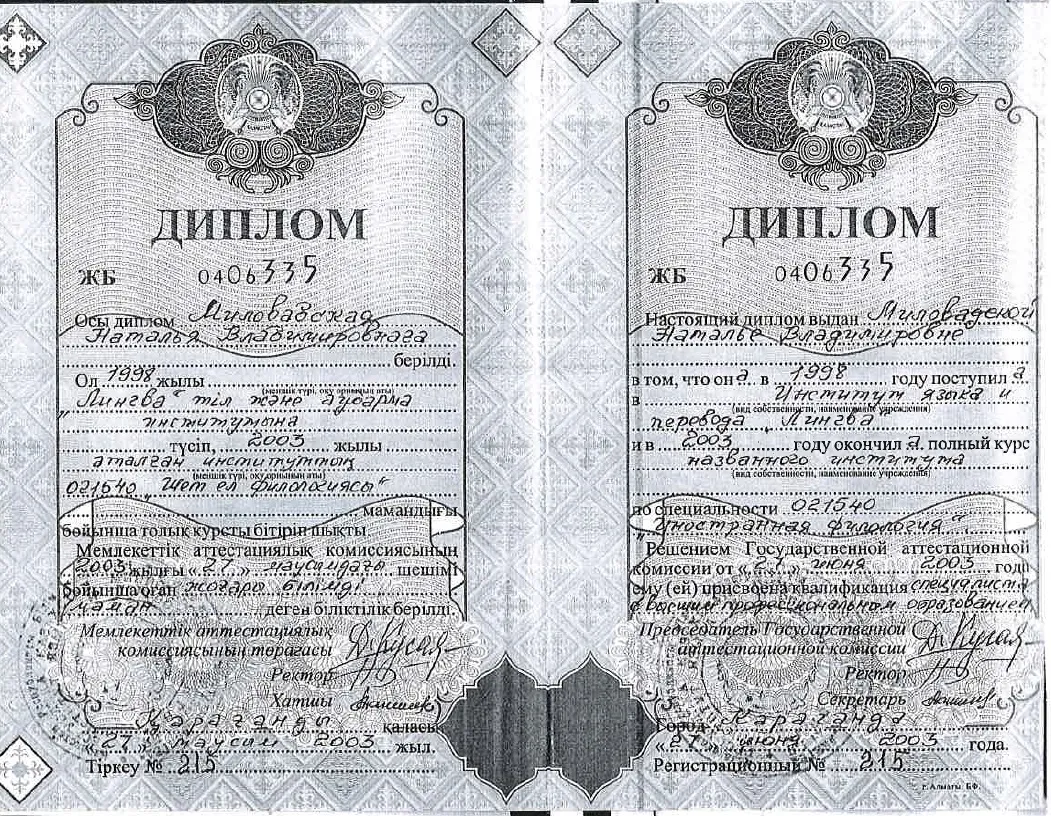 ДИПЛОМ
ЖБ 0406335
Осы диплом Миловадская
Наталья Владимировнаға
берілді
Ол 1998 жылы
(меншік түрі, оқу орнының аты)
"Лингва" тіл және аударма
институтына
түсіп, 2003 жылы
аталған институттың
(меншік түрі, оқу орнының аты)
021540 "Шет ел филологиясы"
мамандығы
бойынша толық курсты бітіріп шықты
Мемлекеттік аттестациялық комиссиясының
2003 жылғы «27» маусымдағы шешімі
бойынша оған жоғары білімді
маман деген біліктілік берілді.
Мемлекеттік аттестациялық
комиссиясының төрағасы
Ректор
Хатшы
Қарағанды қаласы
«27» маусым 2003 жыл.
Тіркеу № 215
ДИПЛОМ
ЖБ 0406335
Настоящий диплом выдан Миловадской
Наталье Владимировне
в том, что она в 1998 году поступила
в Институт языка и
(вид собственности, наименование учреждения)
перевода "Лингва"
и в 2003 году окончила полный курс
названного института
(вид собственности, наименование учреждения)
по специальности 021540
"Иностранная филология"
Решением Государственной аттестационной
комиссии от «27» июня 2003 года
ему (ей) присвоена квалификация специалиста
с высшим профессиональным образованием
Председатель Государственной
аттестационной комиссии
Ректор
Секретарь
Город Караганда
«27» июня 2003 года.
Регистрационный № 215
г.Алматы. БФ.